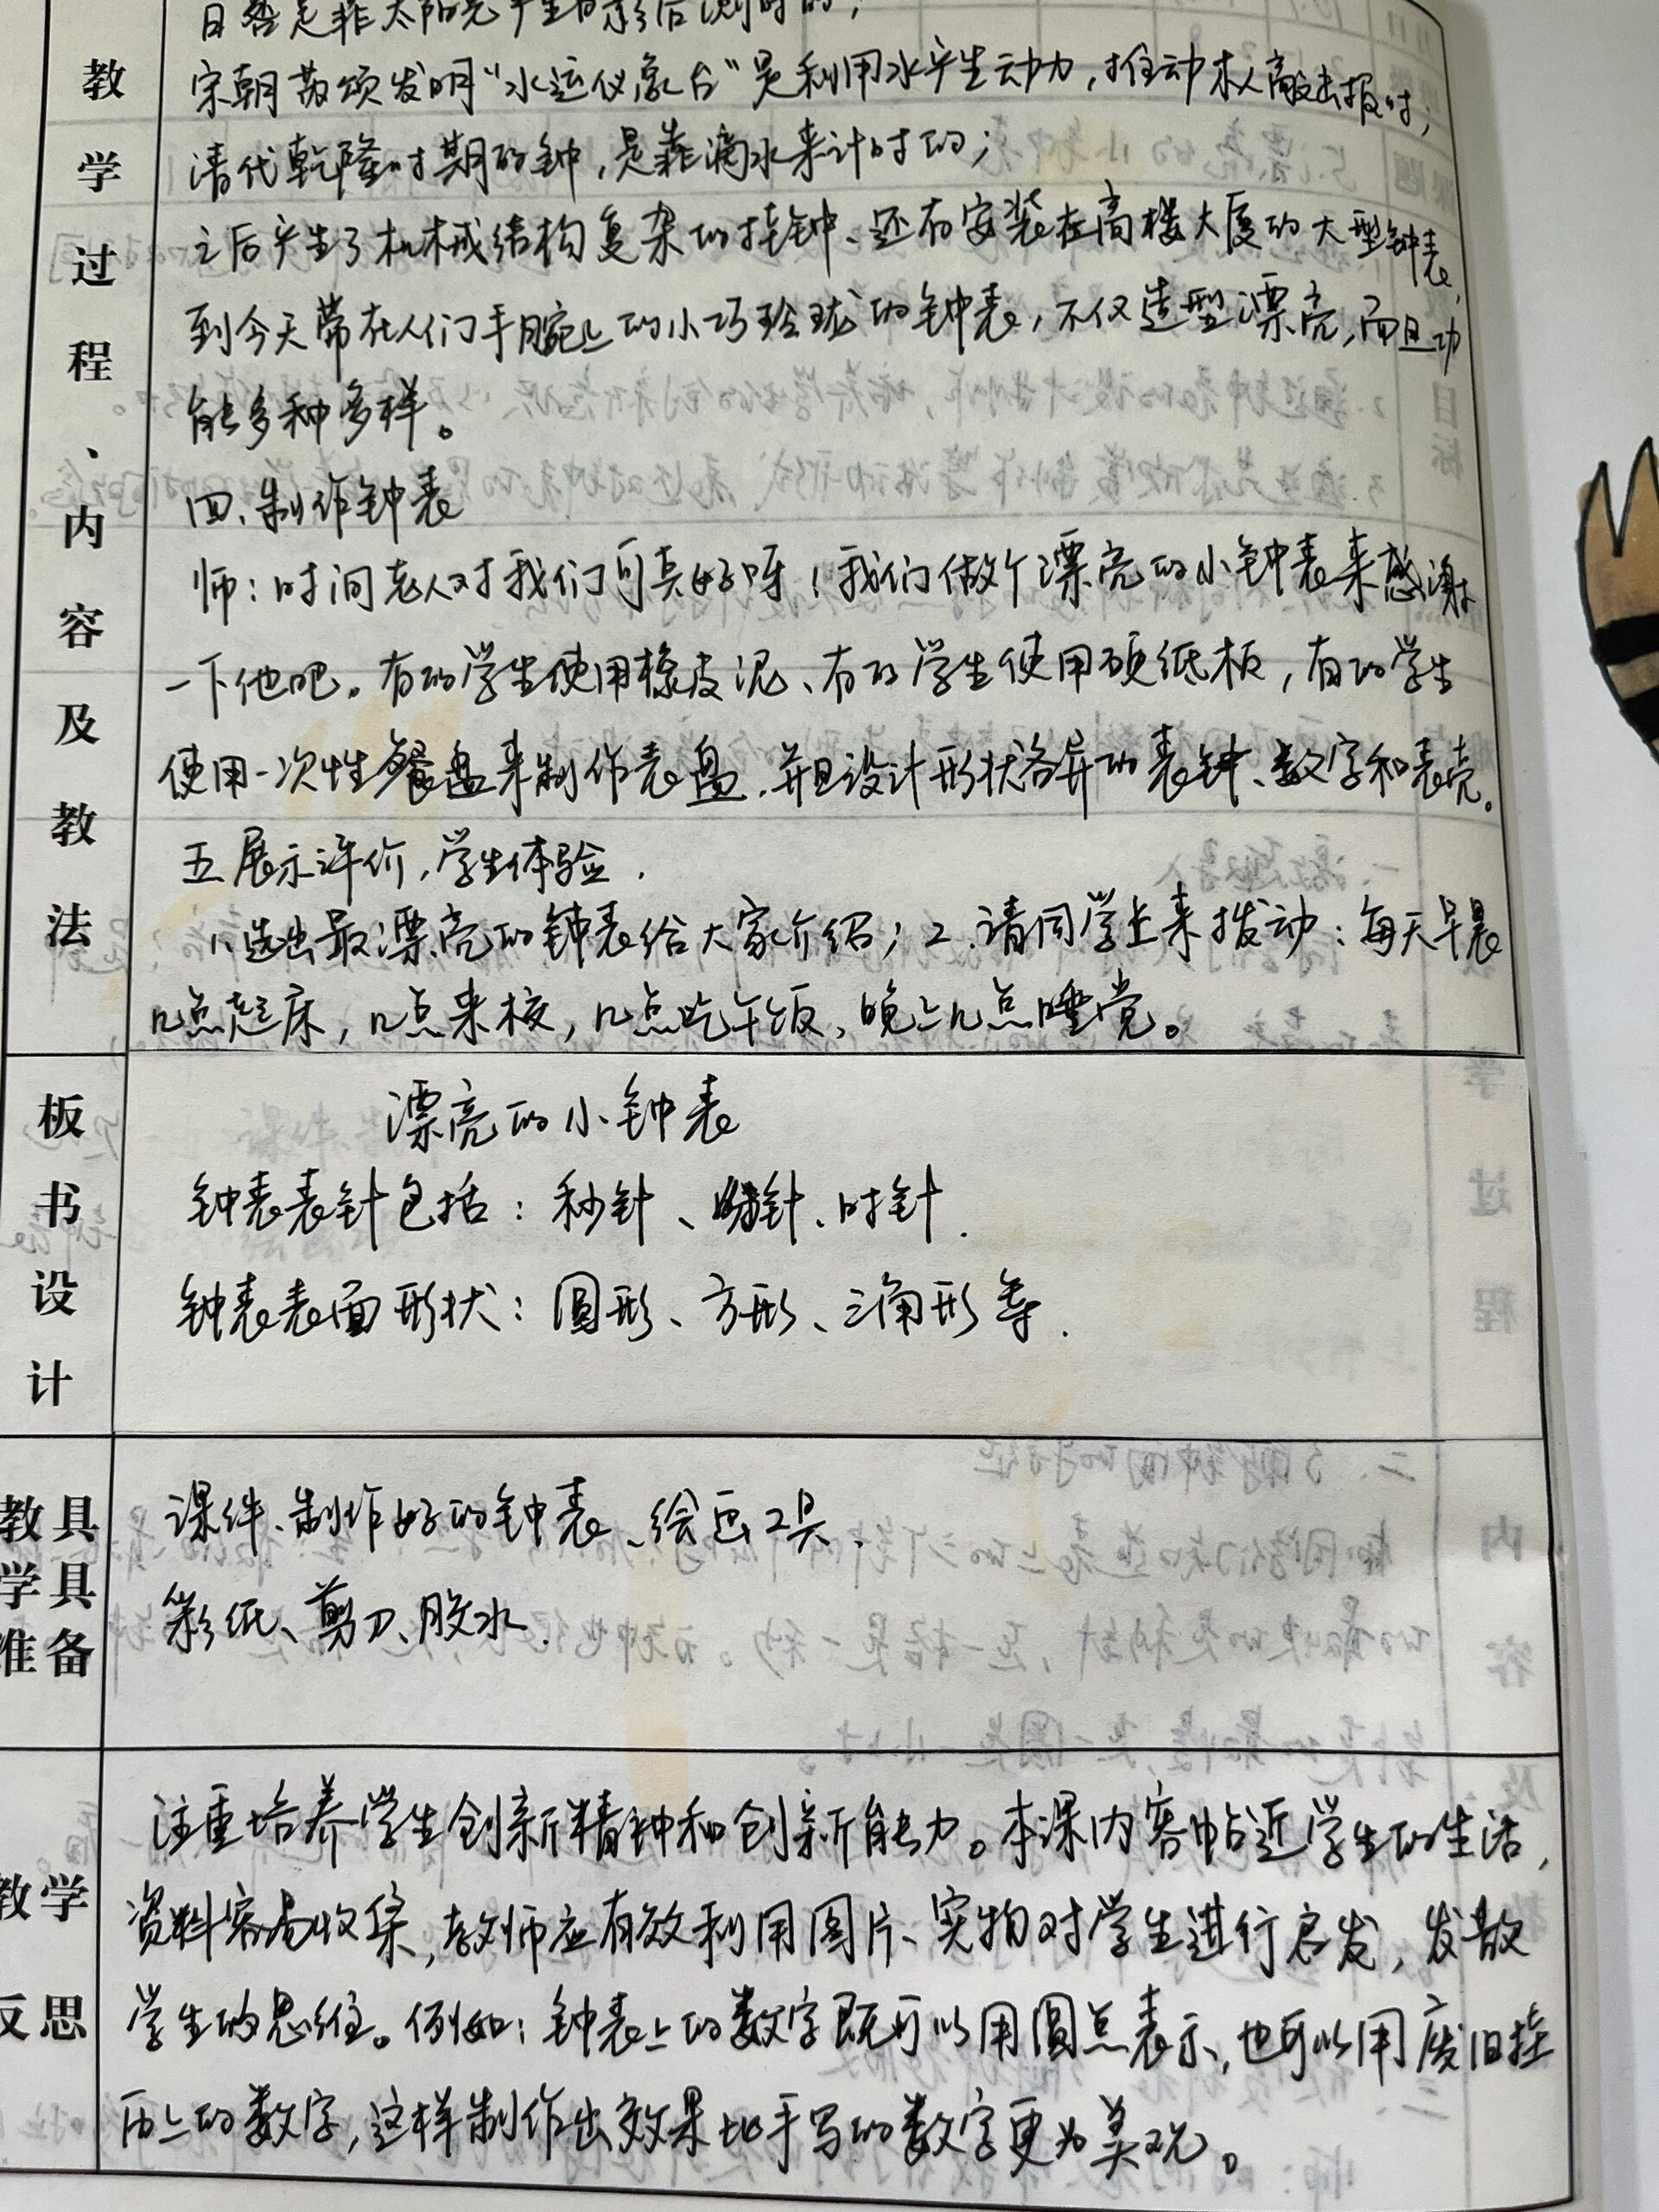 日晷是靠太阳光产生的影后测时的；
教学过程、内容及教法
宋朝苏颂发明“水运仪象台”是利用水产生动力，推动木人敲击报时；
清代乾隆时期的钟，是靠滴水来计时的；
之后产生了机械结构复杂的挂钟、还有安装在高楼大厦的大型钟表，
到今天带在人们手腕上的小巧玲珑的钟表，不仅造型漂亮，而且功
能多种多样。
四、制作钟表
师：时间老人对我们可真好呀！我们做个漂亮的小钟表来感谢
一下他吧。有的学生使用橡皮泥、有的学生使用硬纸板，有的学生
使用一次性餐盘来制作表盘．并且设计形状各异的表钟、数字和表壳。
五展示评价，学生体验．
1、选出最漂亮的钟表给大家介绍；2．请同学上来拨动：每天早晨
几点起床，几点来校，几点吃午饭、晚上几点睡觉。
板书设计
漂亮的小钟表
钟表表针包括：秒针、分针、时针．
钟表表面形状：圆形、方形、三角形等．
教具
学具
准备
课件、制作好的钟表、绘画工具．
彩纸、剪刀、胶水．
教学
反思
注重培养学生创新精神和创新能力。本课内容帖近学生的生活，
资料容易收集，教师应有效利用图片、实物对学生进行启发，发散
学生的思维。例如：钟表上的数字既可以用圆点表示，也可以用废旧挂
历上的数字，这样制作出效果比手写的数字更为美观。